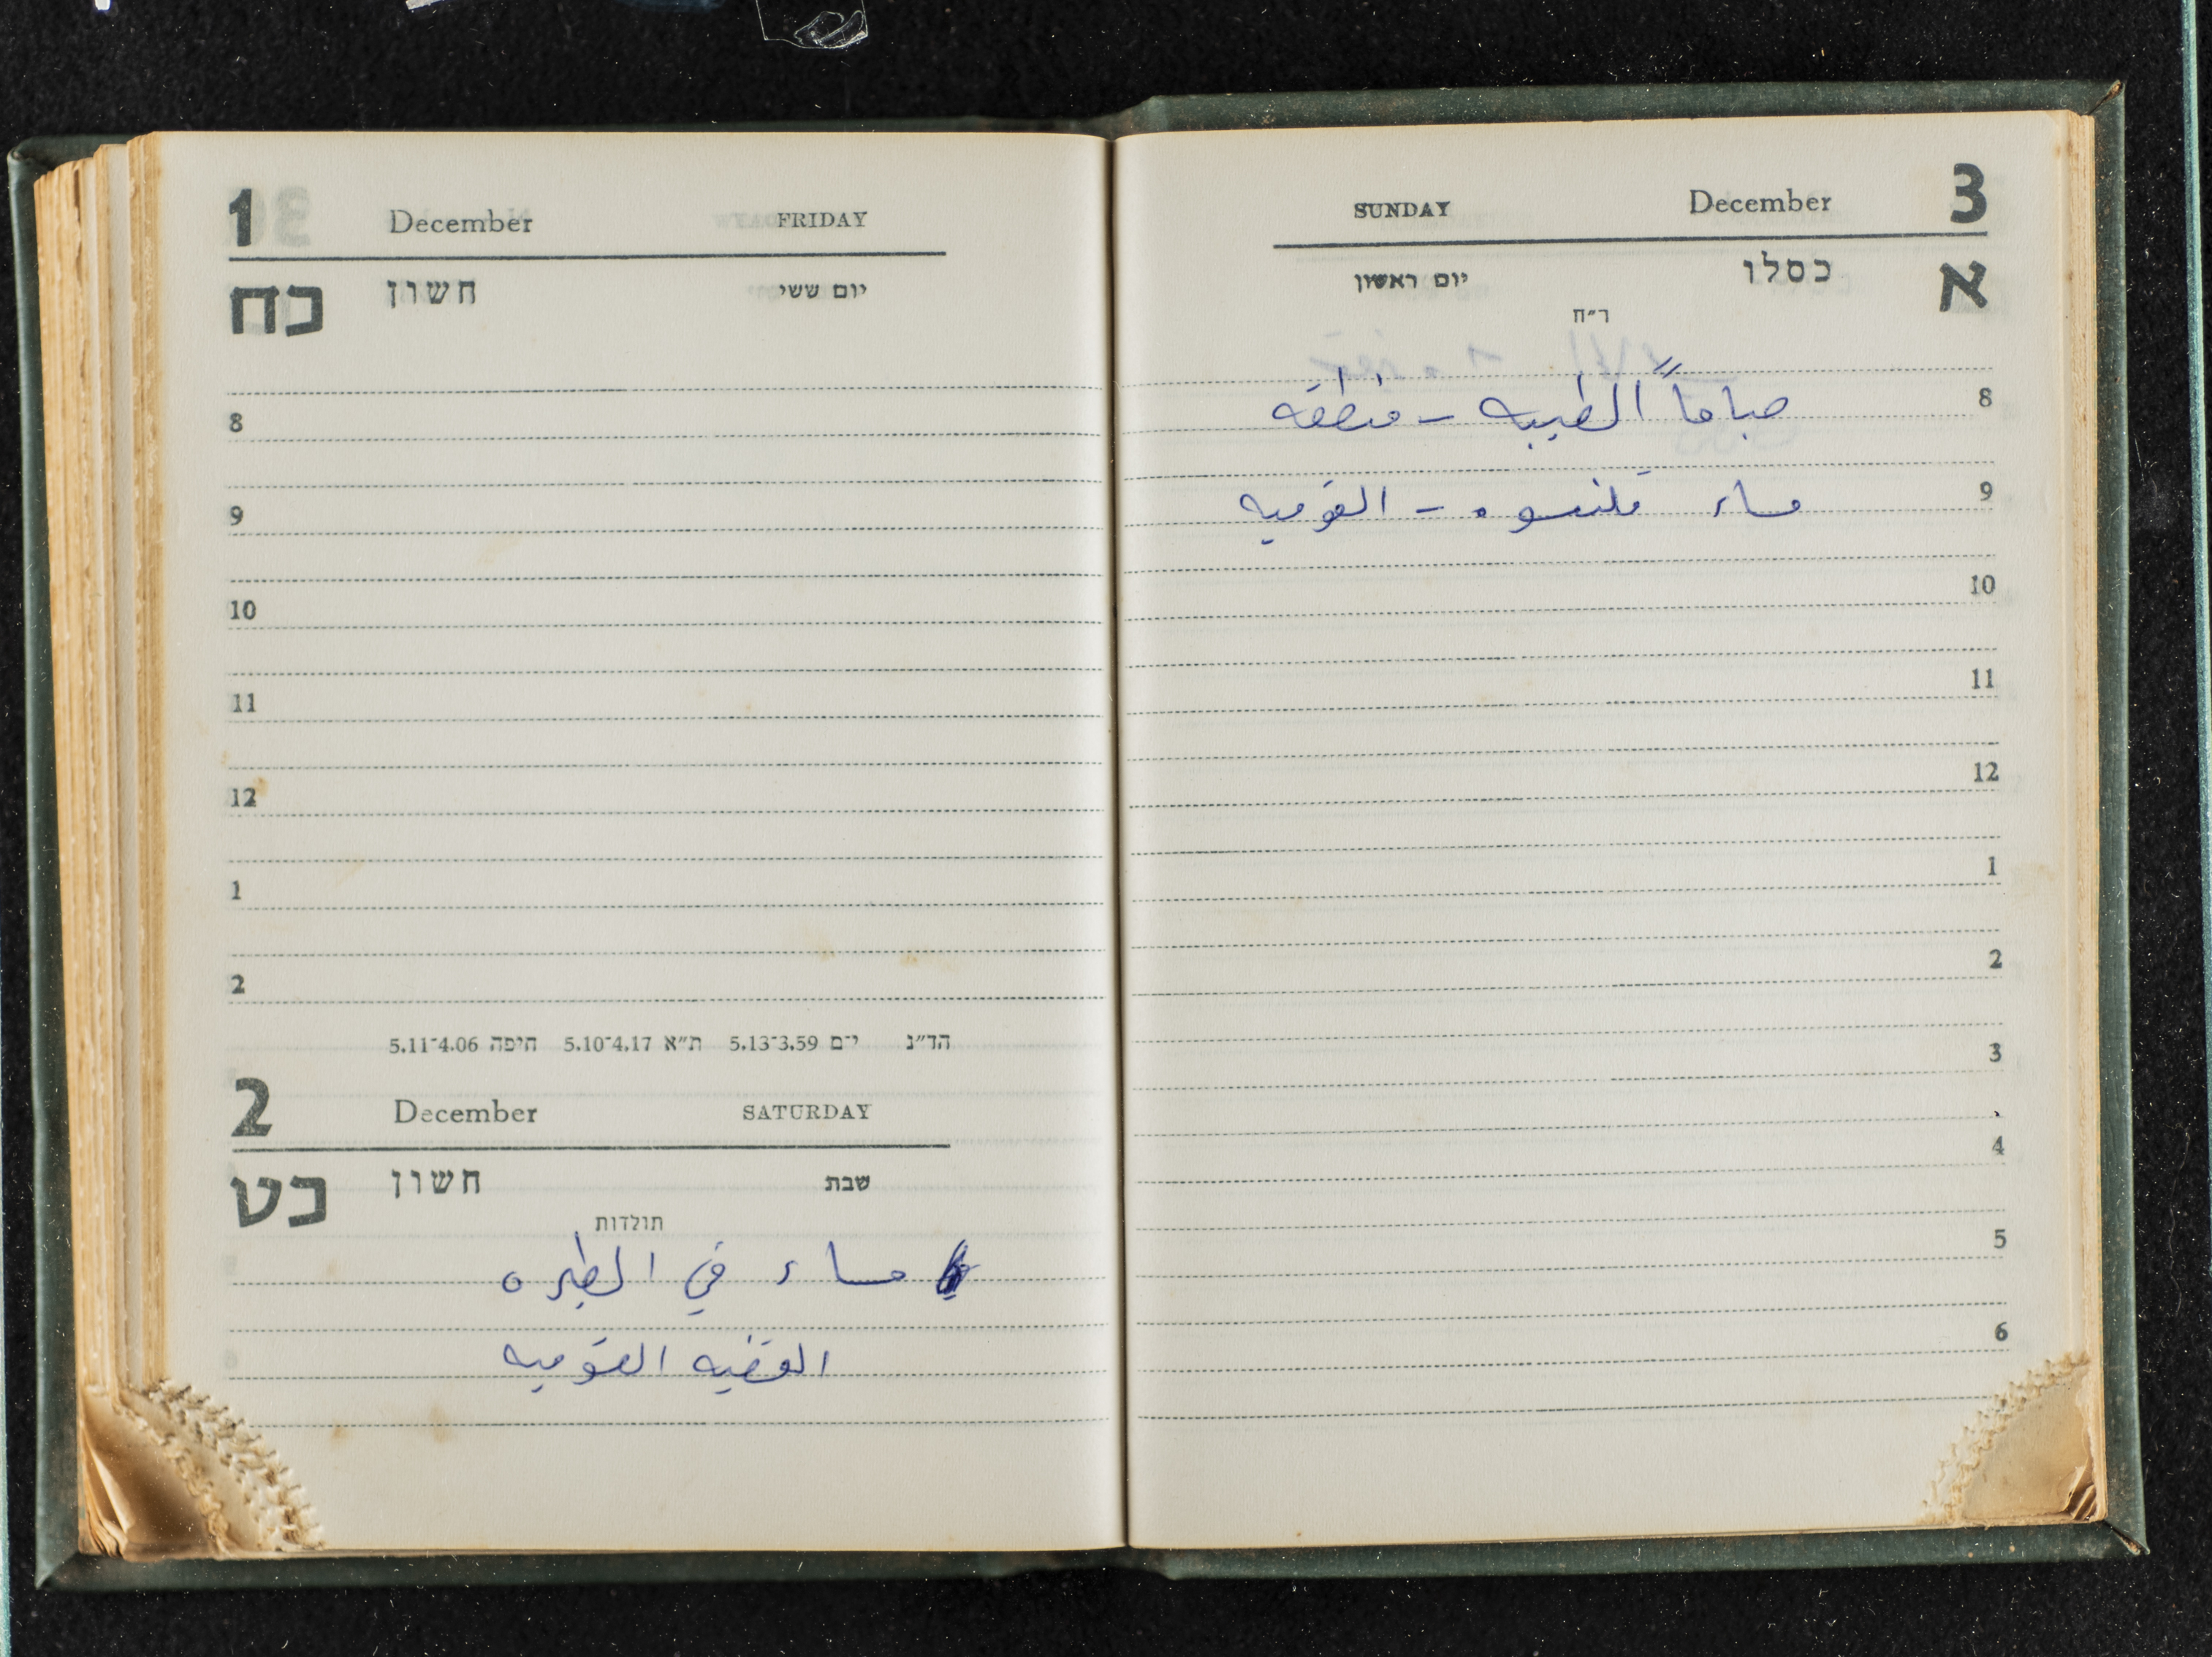 1 December FRIDAY
כח חשון יום ששי
8
9
10
11
12
1
2
הד״נ י־ם 5.13־3.59 ת״א 5.10־4.17 חיפה 5.11־4.06
2 December SATURDAY
כט חשון שבת
תולדות
مساء في الطيره
القضيه القوميه
SUNDAY December 3
א כסלו יום ראשון
ר״ח
8 صباحاً الطيبه - منطقه
9 مساء قلنسوه - القوميه
10
11
12
1
2
3
4
5
6